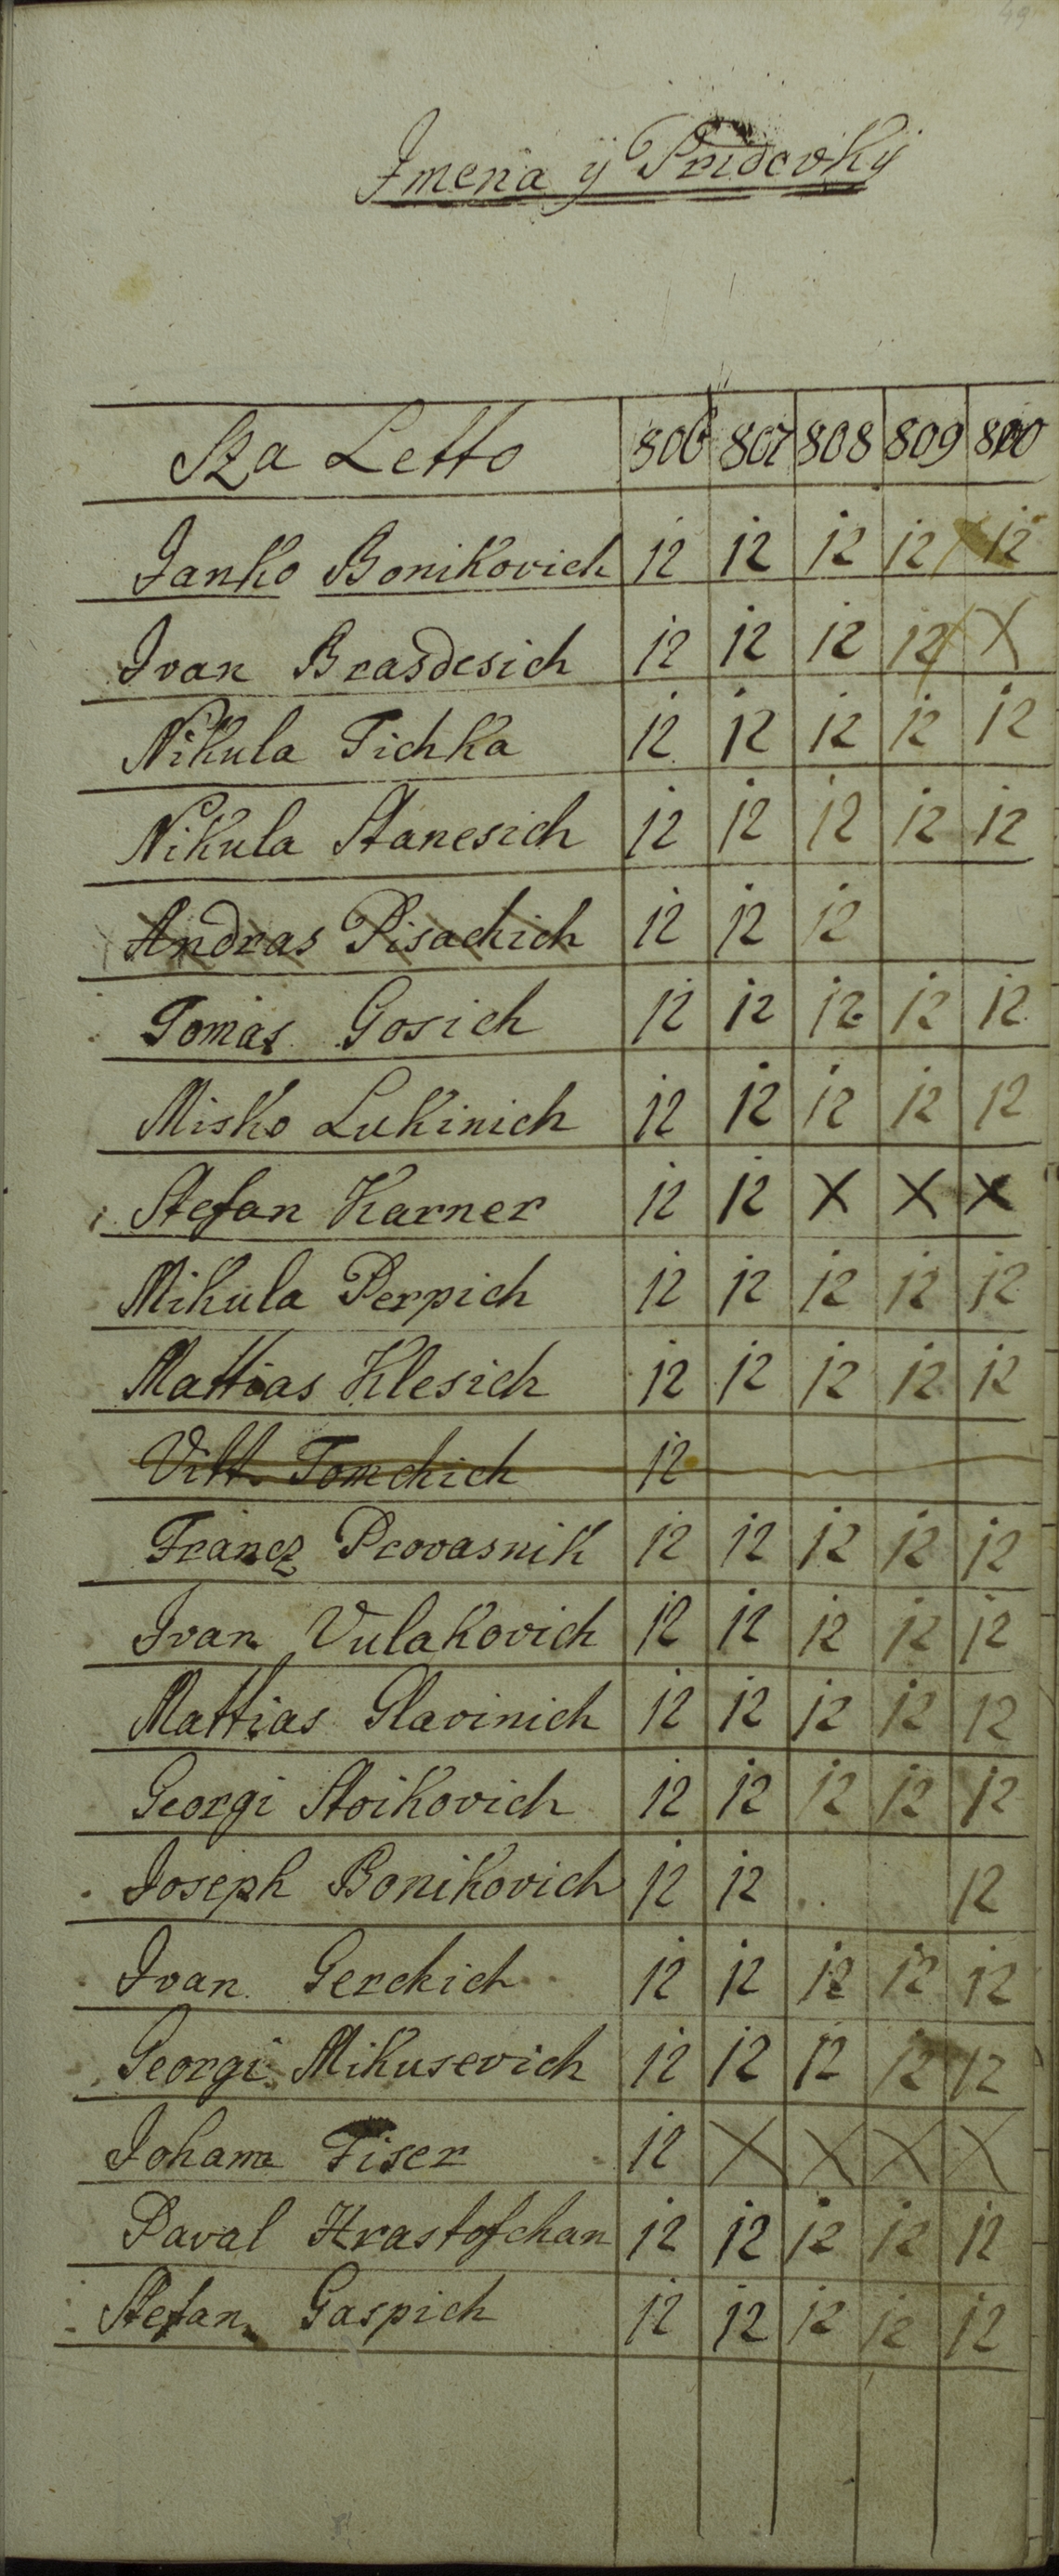 49
Imena ÿ Pridevkÿ
Sza Letto 806 807 808 809 810
Janko Bonikovich 12 12 12 12 12
Ivan Brasdesich 12 12 12 12 X
Nikula Tichka 12 12 12 12 12
Nikula Stanesich 12 12 12 12 12
Andras Pisachich 12 12 12
Tomas Gosich 12 12 12 12 12
Misko Lukinich 12 12 12 12 12
Stefan Karner 12 12 X X X
Mikula Perpich 12 12 12 12 12
Mattias Klesich 12 12 12 12 12
Vitt Tomchich 12
Francz Provasnik 12 12 12 12 12
Ivan Vulakovich 12 12 12 12 12
Mattias Glavinich 12 12 12 12 12
Georgi Stoikovich 12 12 12 12 12
Joseph Bonikovich 12 12 12
Ivan Gerchich 12 12 12 12 12
Georgi Mikusevich 12 12 12 12 12
Johann Fiser 12 X X X X
Paval Hrastofchan 12 12 12 12 12
Stefan Gaspich 12 12 12 12 12